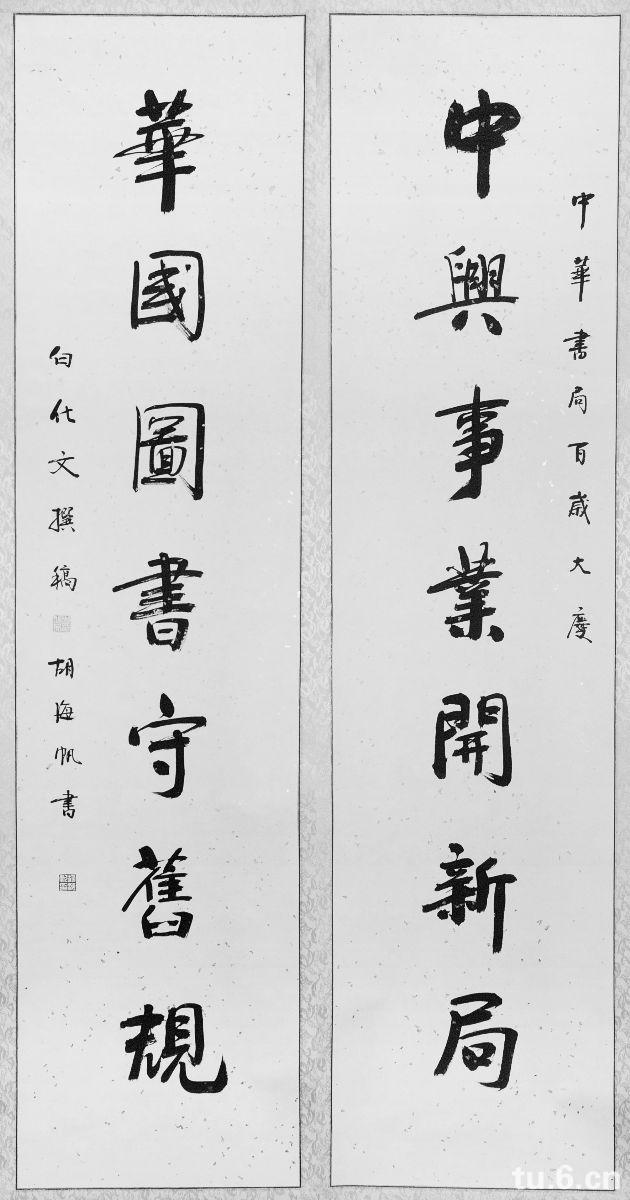 中華書局百歲大慶
中興事業開新局
華國圖書守舊規
白化文撰稿
胡海帆書
tu.6.cn